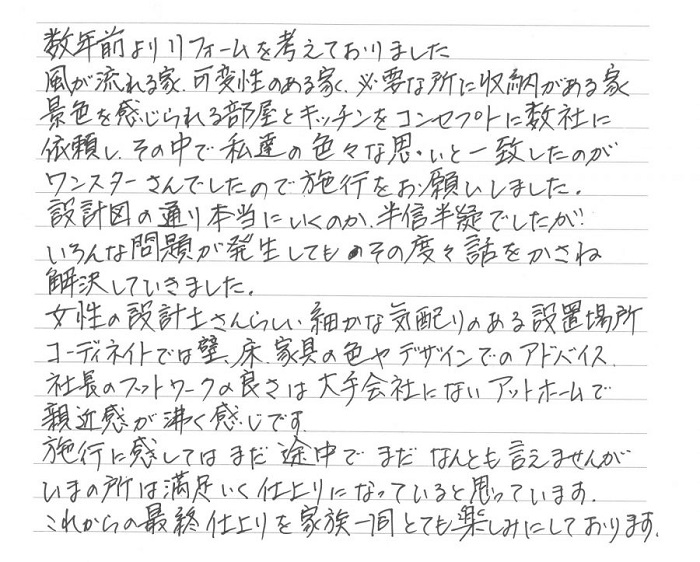 数年前よりリフォームを考えておりました
風が流れる家、可変性のある家、必要な所に収納がある家
景色を感じられる部屋とキッチンをコンセプトに数社に
依頼し、その中で私達の色々な思いと一致したのが
ワンスターさんでしたので施行をお願いしました。
設計図の通り本当にいくのか、半信半疑でしたが!
いろんな問題が発生してもその度々話をかさね
解決していきました。
女性の設計士さんらしい細かな気配りのある設置場所
コーディネイトでは壁、床、家具の色やデザインでのアドバイス
社長のフットワークの良さは大手会社にないアットホームで
親近感が沸く感じです
施行に感してはまだ途中でまだなんとも言えませんが
いまの所は満足いく仕上りになっていると思っています.
これからの最終仕上りを家族一同とても楽しみにしております.